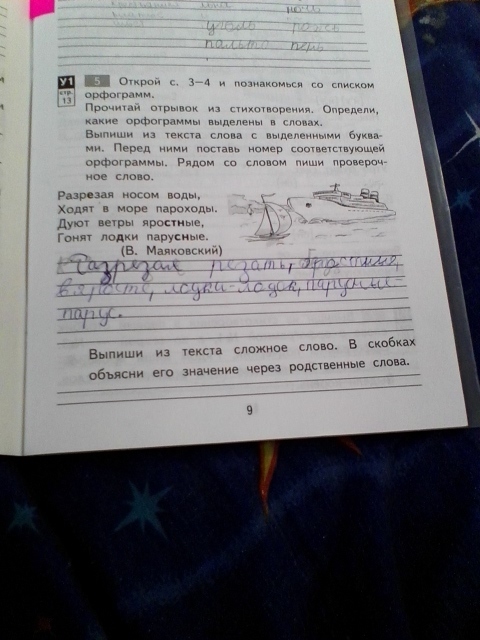 уголь рожь
пальто
У1 5 Открой с. 3—4 и познакомься со списком
стр. 13 орфограмм.
Прочитай отрывок из стихотворения. Определи,
какие орфограммы выделены в словах.
Выпиши из текста слова с выделенными буква-
ми. Перед ними поставь номер соответствующей
орфограммы. Рядом со словом пиши провероч-
ное слово.
Разрезая носом воды,
Ходят в море пароходы.
Дуют ветры яростные,
Гонят лодки парусные.
(В. Маяковский)
резать,
лодки-лодок,
парус.
Выпиши из текста сложное слово. В скобках
объясни его значение через родственные слова.
9